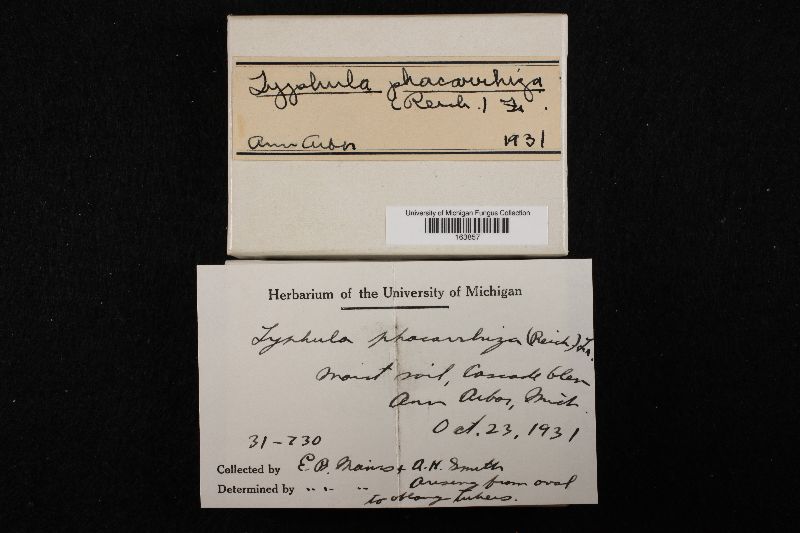 Typhula phacorrhiza
(Reich.) Fr.
Ann Arbor 1931
University of Michigan Fungus Collection
163857
Herbarium of the University of Michigan
Typhula phacorrhiza (Reich.) Fr.
Moist soil, Cascade Glen
Ann Arbor, Mich.
Oct. 23, 1931
31-730
Collected by E. B. Mains & A. H. Smith
Determined by " " "
Arising from oval
to oblong tubers.